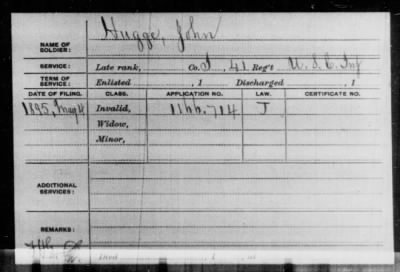 NAME OF SOLDIER: Hugge, John
SERVICE: Late rank, Co. I, 41 Reg't U.S.C. Inf
TERM OF SERVICE: Enlisted , 1 Discharged , 1
DATE OF FILING. CLASS. APPLICATION NO. LAW. CERTIFICATE NO.
1895, May 4 Invalid, 1166.714 J
Widow,
Minor,
ADDITIONAL SERVICES:
REMARKS:
Died , 1 , at